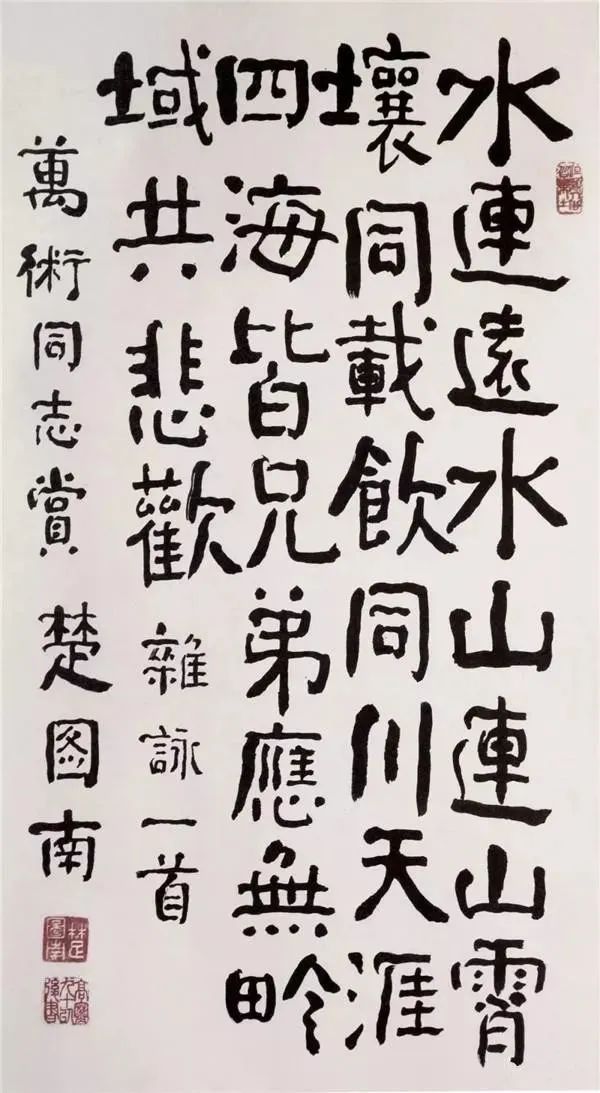 水連遠水山連山霄
壤同載飲同川天涯
四海皆兄弟應無畛
域共悲歡 雜詠一首
萬術同志賞 楚图南
楚圖南